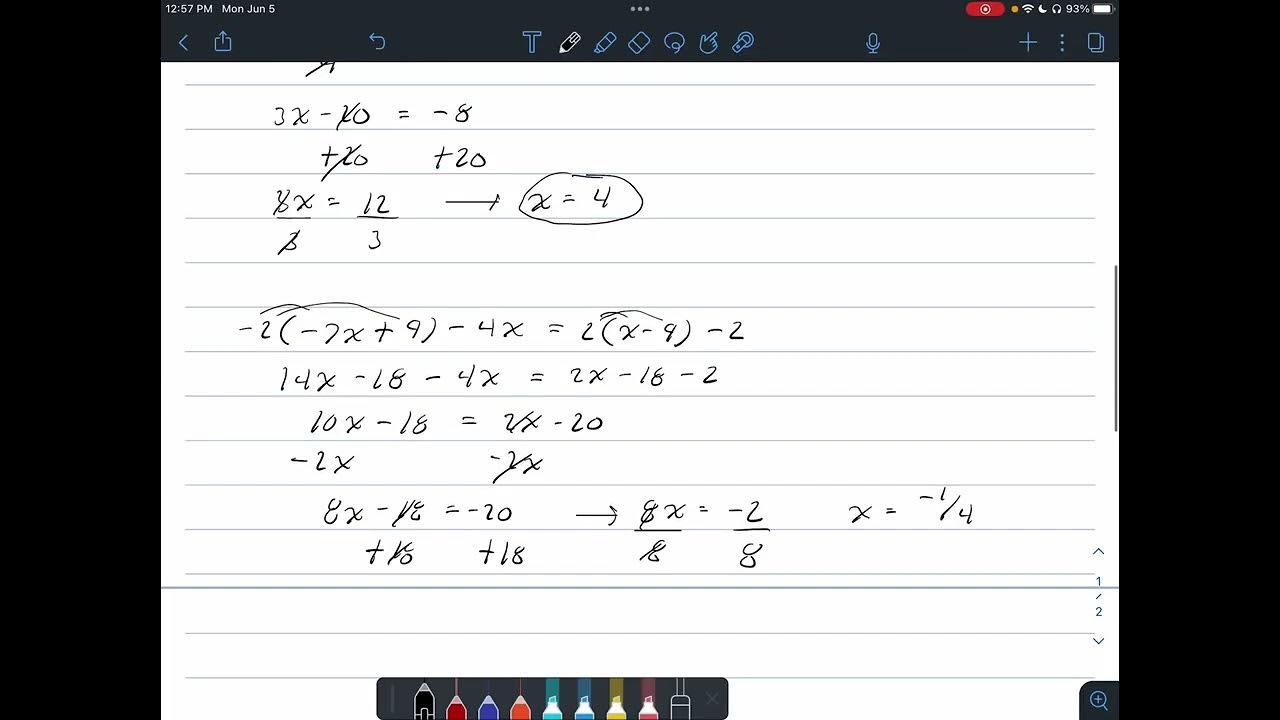 12:57 PM Mon Jun 5
93%
T
3x - 20 = -8
+20 +20
3x = 12 → x = 4
3 3
-2(-7x + 9) - 4x = 2(x - 9) - 2
14x - 18 - 4x = 2x - 18 - 2
10x - 18 = 2x - 20
-2x -2x
8x - 18 = -20 → 8x = -2 x = -1/4
+18 +18 8 8
1
/
2